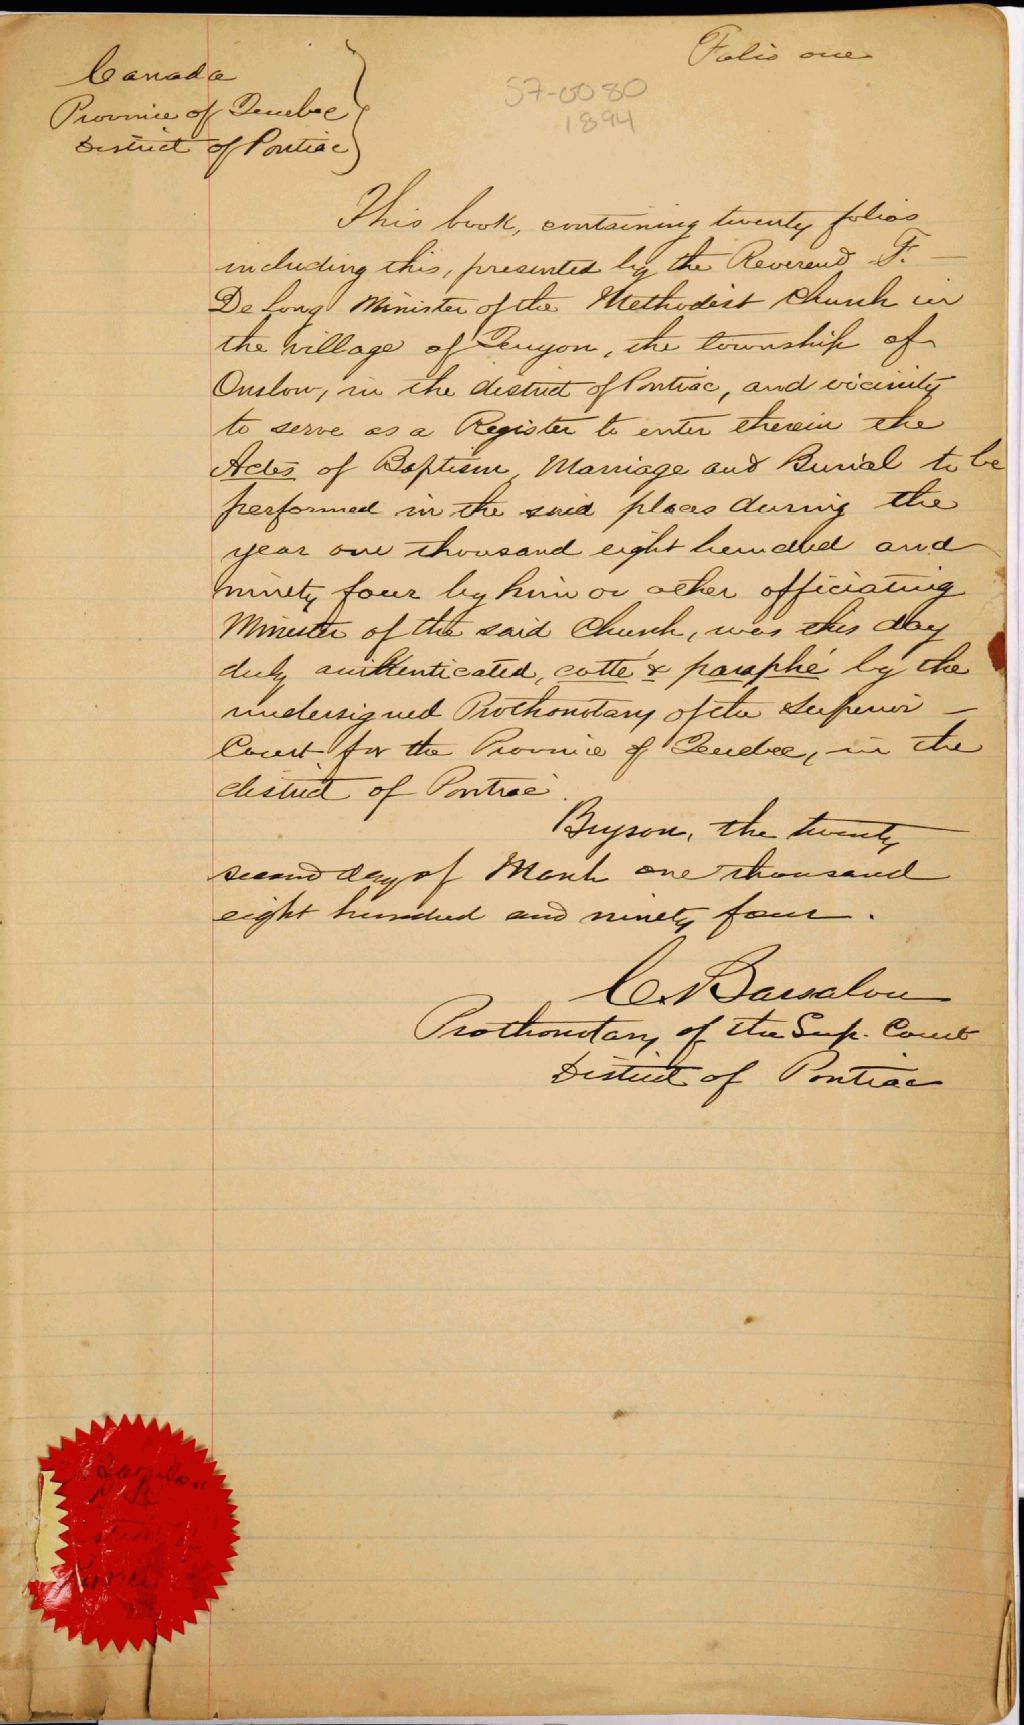 Folio one
Canada
Province of Quebec
District of Pontiac
57-0080
1894
This book, containing twenty folios
including this, presented by the Reverend F. —
De Long Minister of the Methodist Church in
the village of Quyon, the township of
Onslow, in the district of Pontiac, and vicinity
to serve as a Register to enter therein the
Actes of Baptism, Marriage and Burial to be
performed in the said places during the
year one thousand eight hundred and
ninety four by him or other officiating
Minister of the said Church, was this day
duly authenticated, cotté & paraphé by the
undersigned Prothonotary of the Superior —
Court for the Province of Quebec, in the
district of Pontiac.
Bryson, the twenty
second day of March one thousand
eight hundred and ninety four.
C. Barsalou
Prothonotary of the Sup. Court
District of Pontiac
Barsalou